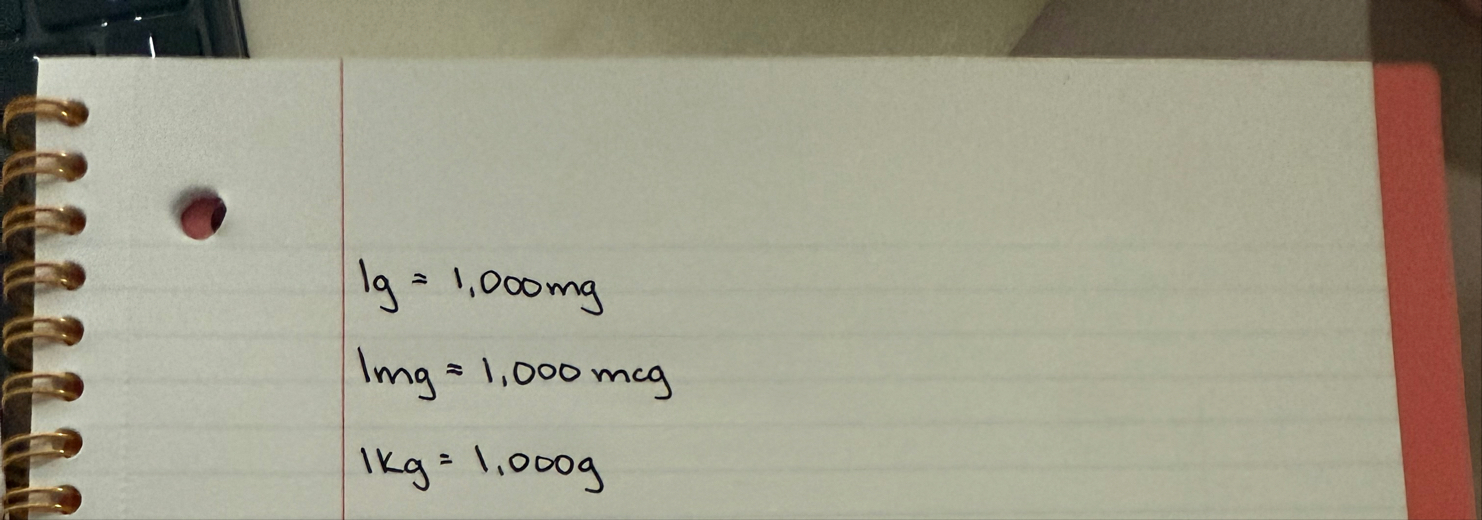 1g = 1,000mg
1mg = 1,000 mcg
1Kg = 1,000g